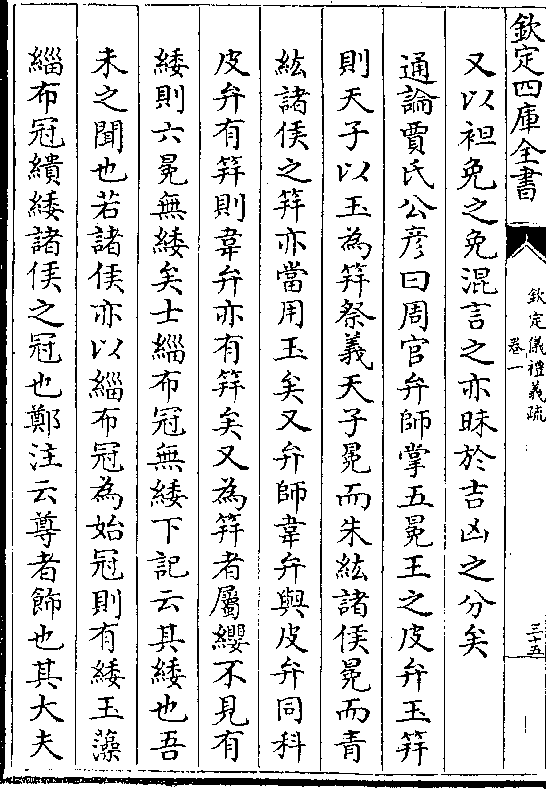 欽定四庫全書
欽定儀禮義疏
卷一
三十五
又以袒免之免混言之亦昧於吉凶之分矣
通論賈氏公彦曰周官弁師掌五冕王之皮弁玉笄
則天子以玉為笄祭義天子冕而朱紘諸侯冕而青
紘諸侯之笄亦當用玉矣又弁師韋弁與皮弁同科
皮弁有笄則韋弁亦有笄矣又為笄者屬纓不見有
緌則六冕無緌矣士緇布冠無緌下記云其緌也吾
未之聞也若諸侯亦以緇布冠為始冠則有緌玉藻
緇布冠繢緌諸侯之冠也鄭注云尊者飾也其大夫